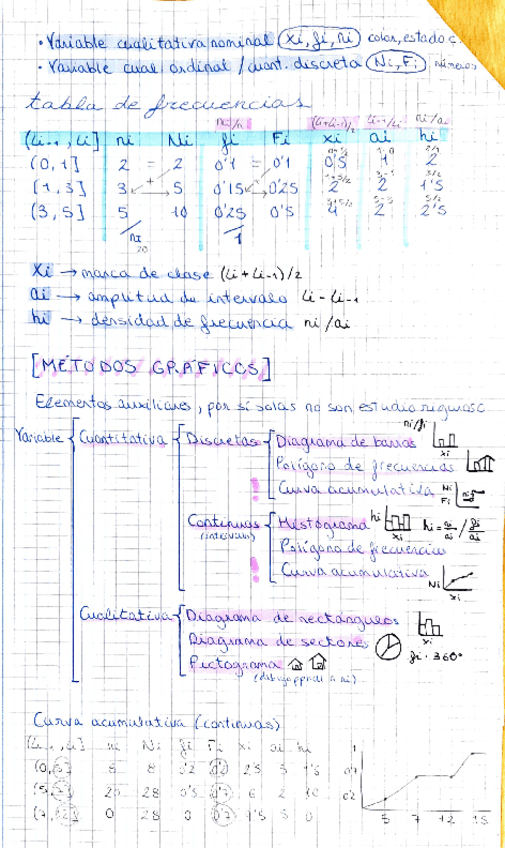 · Variable cualitativa nominal (xi, fi, ni) color, estado c.
· Variable cual. ordinal / cuant. discreta (Ni, Fi) números
tabla de frecuencias
ni/n (Li+Li-1)/2 Li-1/Li ni/ai
(Li-1, Li] ni Ni fi Fi xi ai hi
(0, 1] 2 = 2 0'1 = 0'1 0'5 1 2
(1, 3] 3 + 5 0'15 0'25 2 2 1'5
(3, 5] 5 10 0'25 0'5 4 2 2'5
20 1
xi → marca de clase (Li + Li-1)/2
ai → amplitud de intervalo Li - Li-1
hi → densidad de frecuencia ni/ai
[MÉTODOS GRÁFICOS]
Elementos auxiliares, por si solas no son estudio
Variable Cuantitativa Discretas Diagrama de barras ni/fi xi
Polígono de frecuencias
! Curva acumulativa Ni Fi
Continuas (intervalos) Histograma hi xi
Polígono de frecuencias
! Curva acumulativa Ni xi
Cualitativa Diagrama de rectángulos
Diagrama de sectores fi · 360°
Pictograma
Curva acumulativa (continuas)
(Li-1, Li] ni Ni fi Fi xi ai hi
(0,5] 8 8 0'2 0'2 2'5 5
(5,7] 20 28 0'5 0'7 6 2 10
(7,12] 0 28 0 0'7 5 0
1
0'7
0'2
5 7 12 15